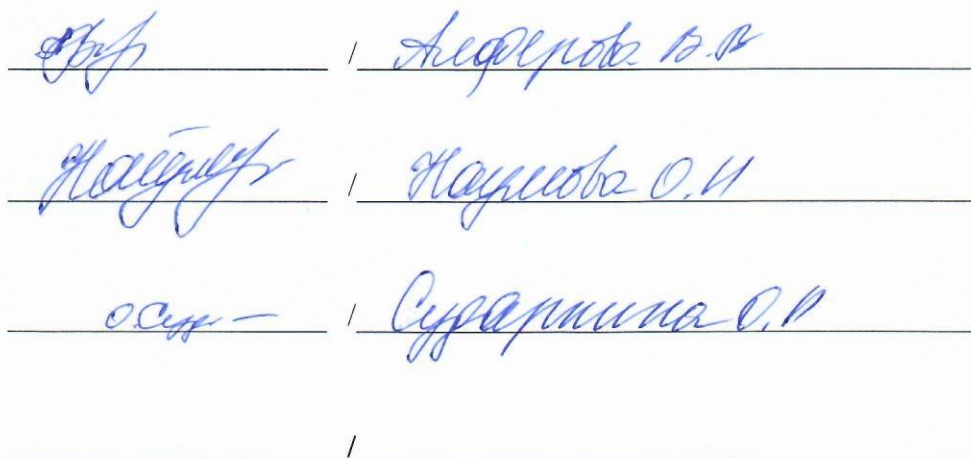 / Алферова В.В
/ Наумова О.И
/ Сударкина О.И
/